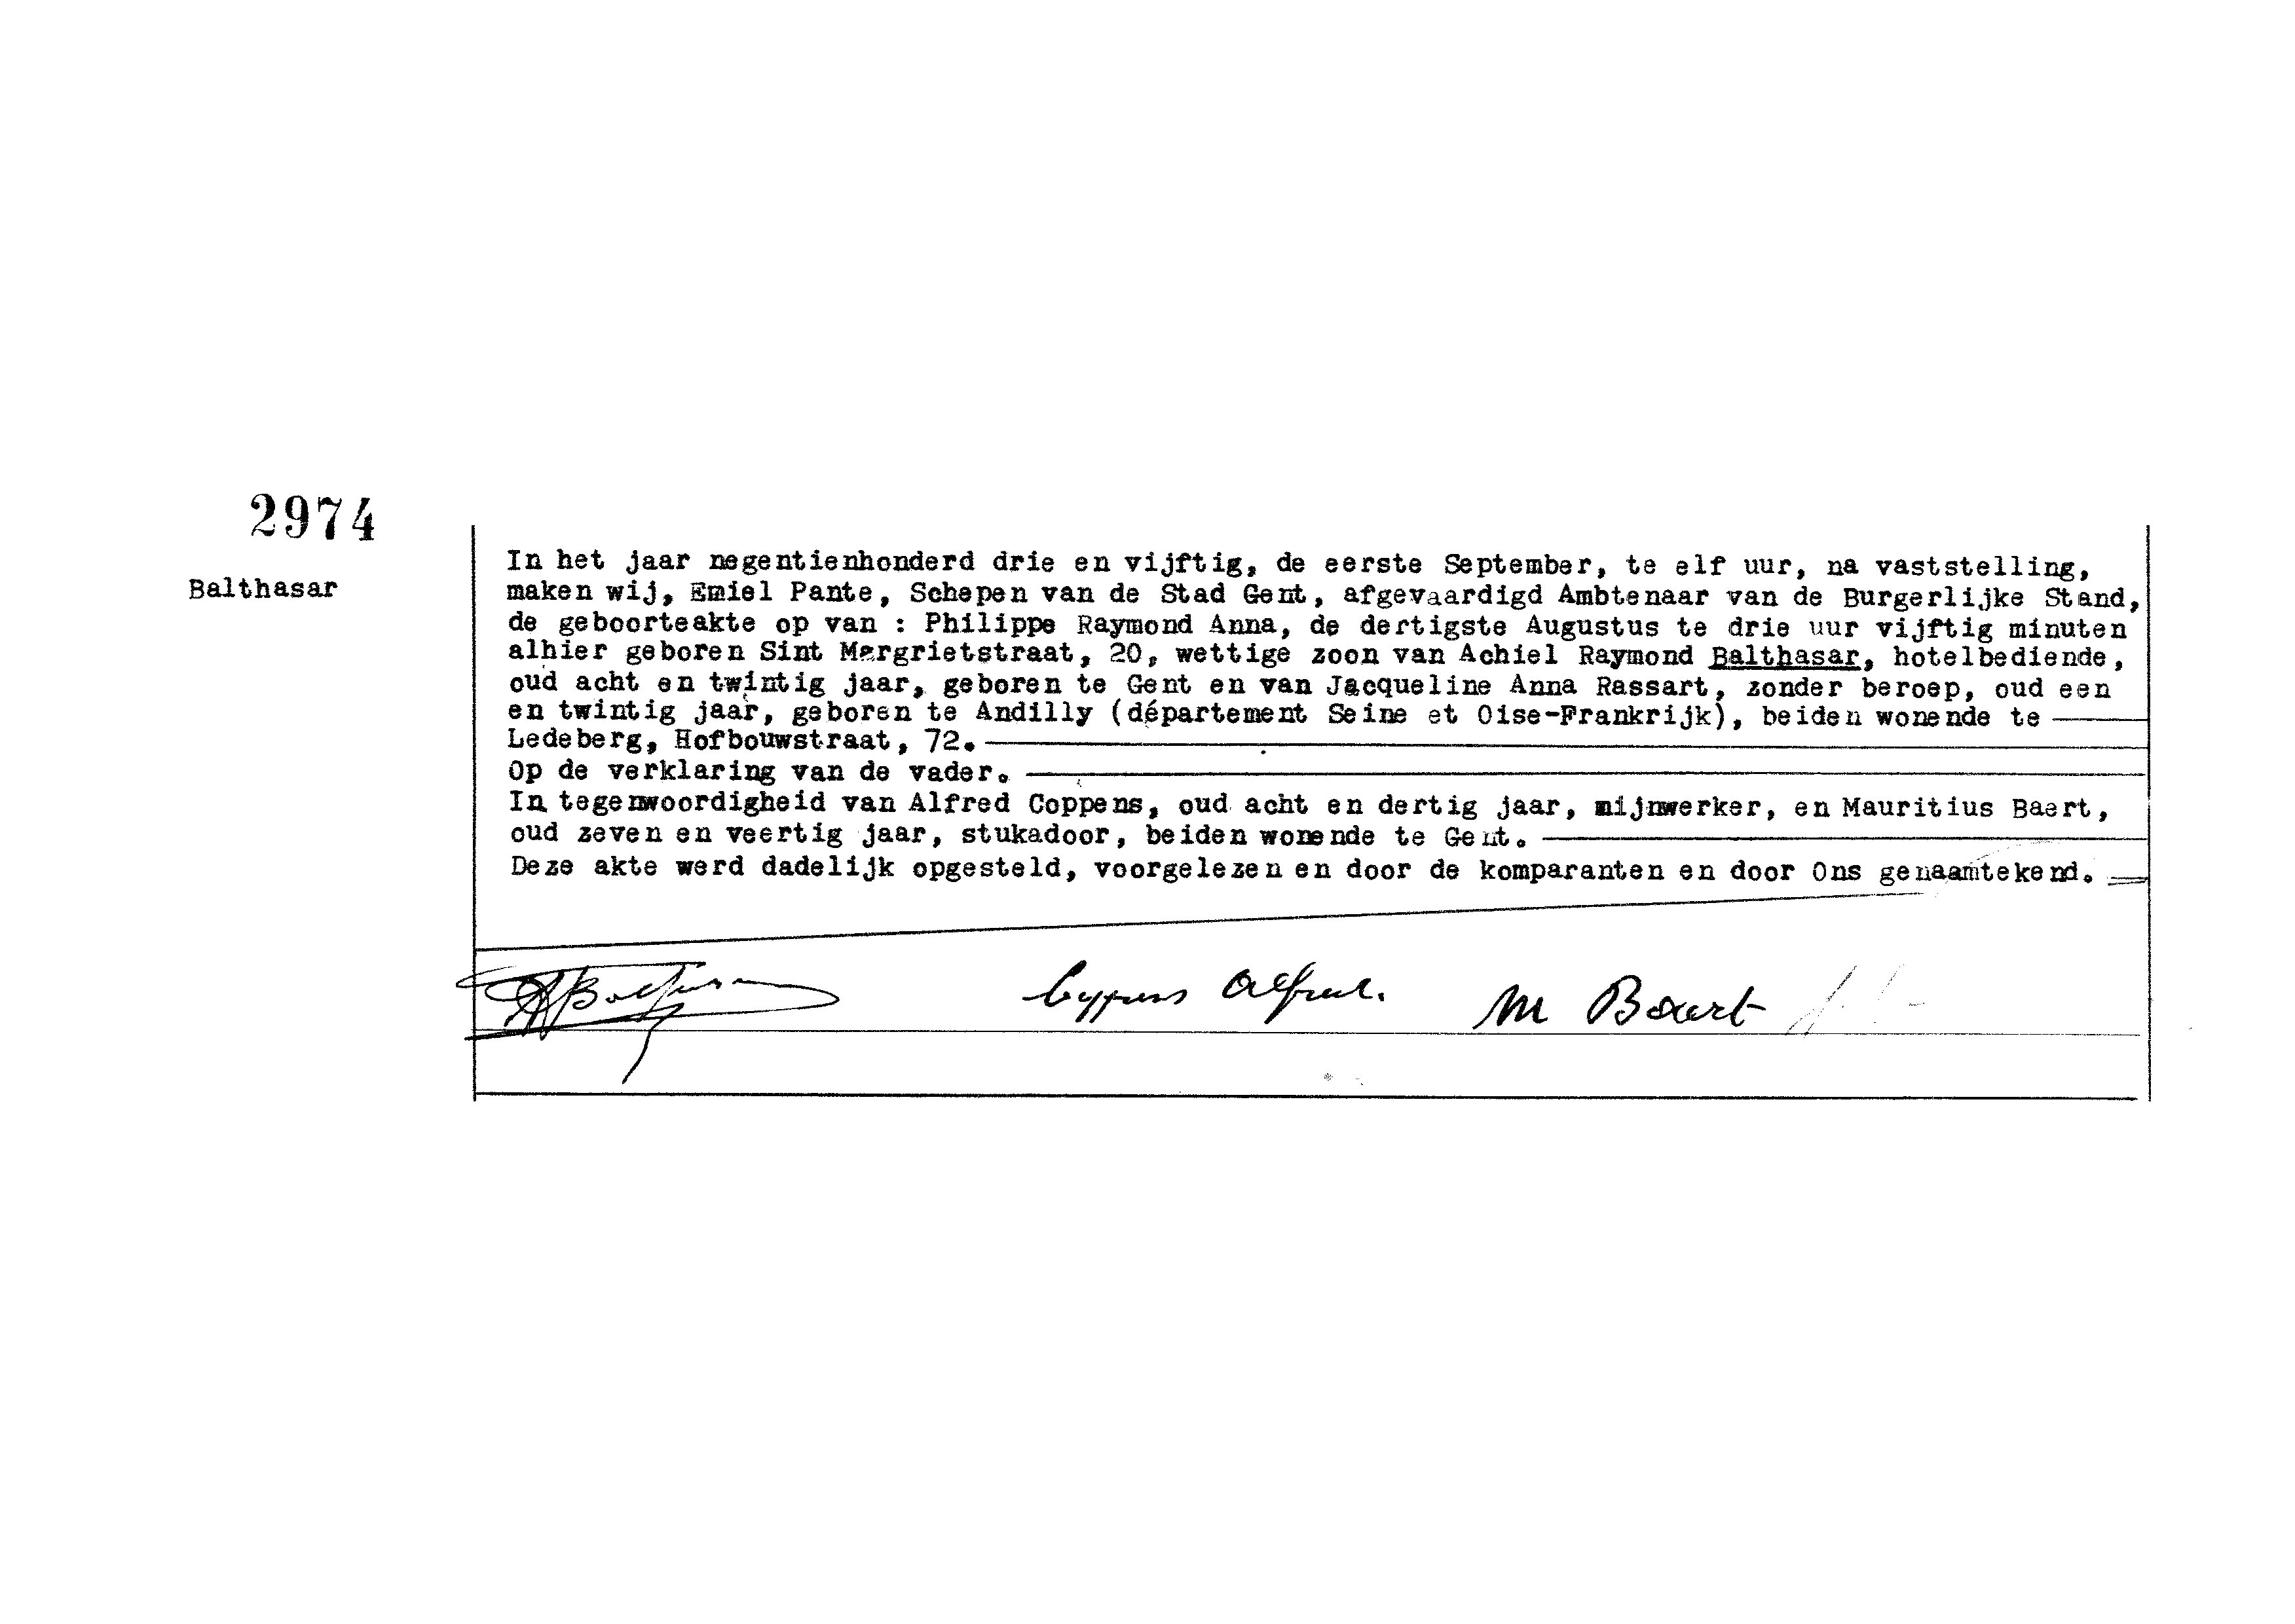 2974
Balthasar
In het jaar negentienhonderd drie en vijftig, de eerste September, te elf uur, na vaststelling,
maken wij, Emiel Pante, Schepen van de Stad Gent, afgevaardigd Ambtenaar van de Burgerlijke Stand,
de geboorteakte op van : Philippe Raymond Anna, de dertigste Augustus te drie uur vijftig minuten
alhier geboren Sint Margrietstraat, 20, wettige zoon van Achiel Raymond Balthasar, hotelbediende,
oud acht en twintig jaar, geboren te Gent en van Jacqueline Anna Rassart, zonder beroep, oud een
en twintig jaar, geboren te Andilly (département Seine et Oise-Frankrijk), beiden wonende te
Ledeberg, Hofbouwstraat, 72.
Op de verklaring van de vader.
In tegenwoordigheid van Alfred Coppens, oud acht en dertig jaar, mijnwerker, en Mauritius Baert,
oud zeven en veertig jaar, stukadoor, beiden wonende te Gent.
Deze akte werd dadelijk opgesteld, voorgelezen en door de komparanten en door Ons genaamtekend.
Coppens Alfred. M Baert